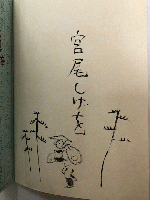 宮尾しげを